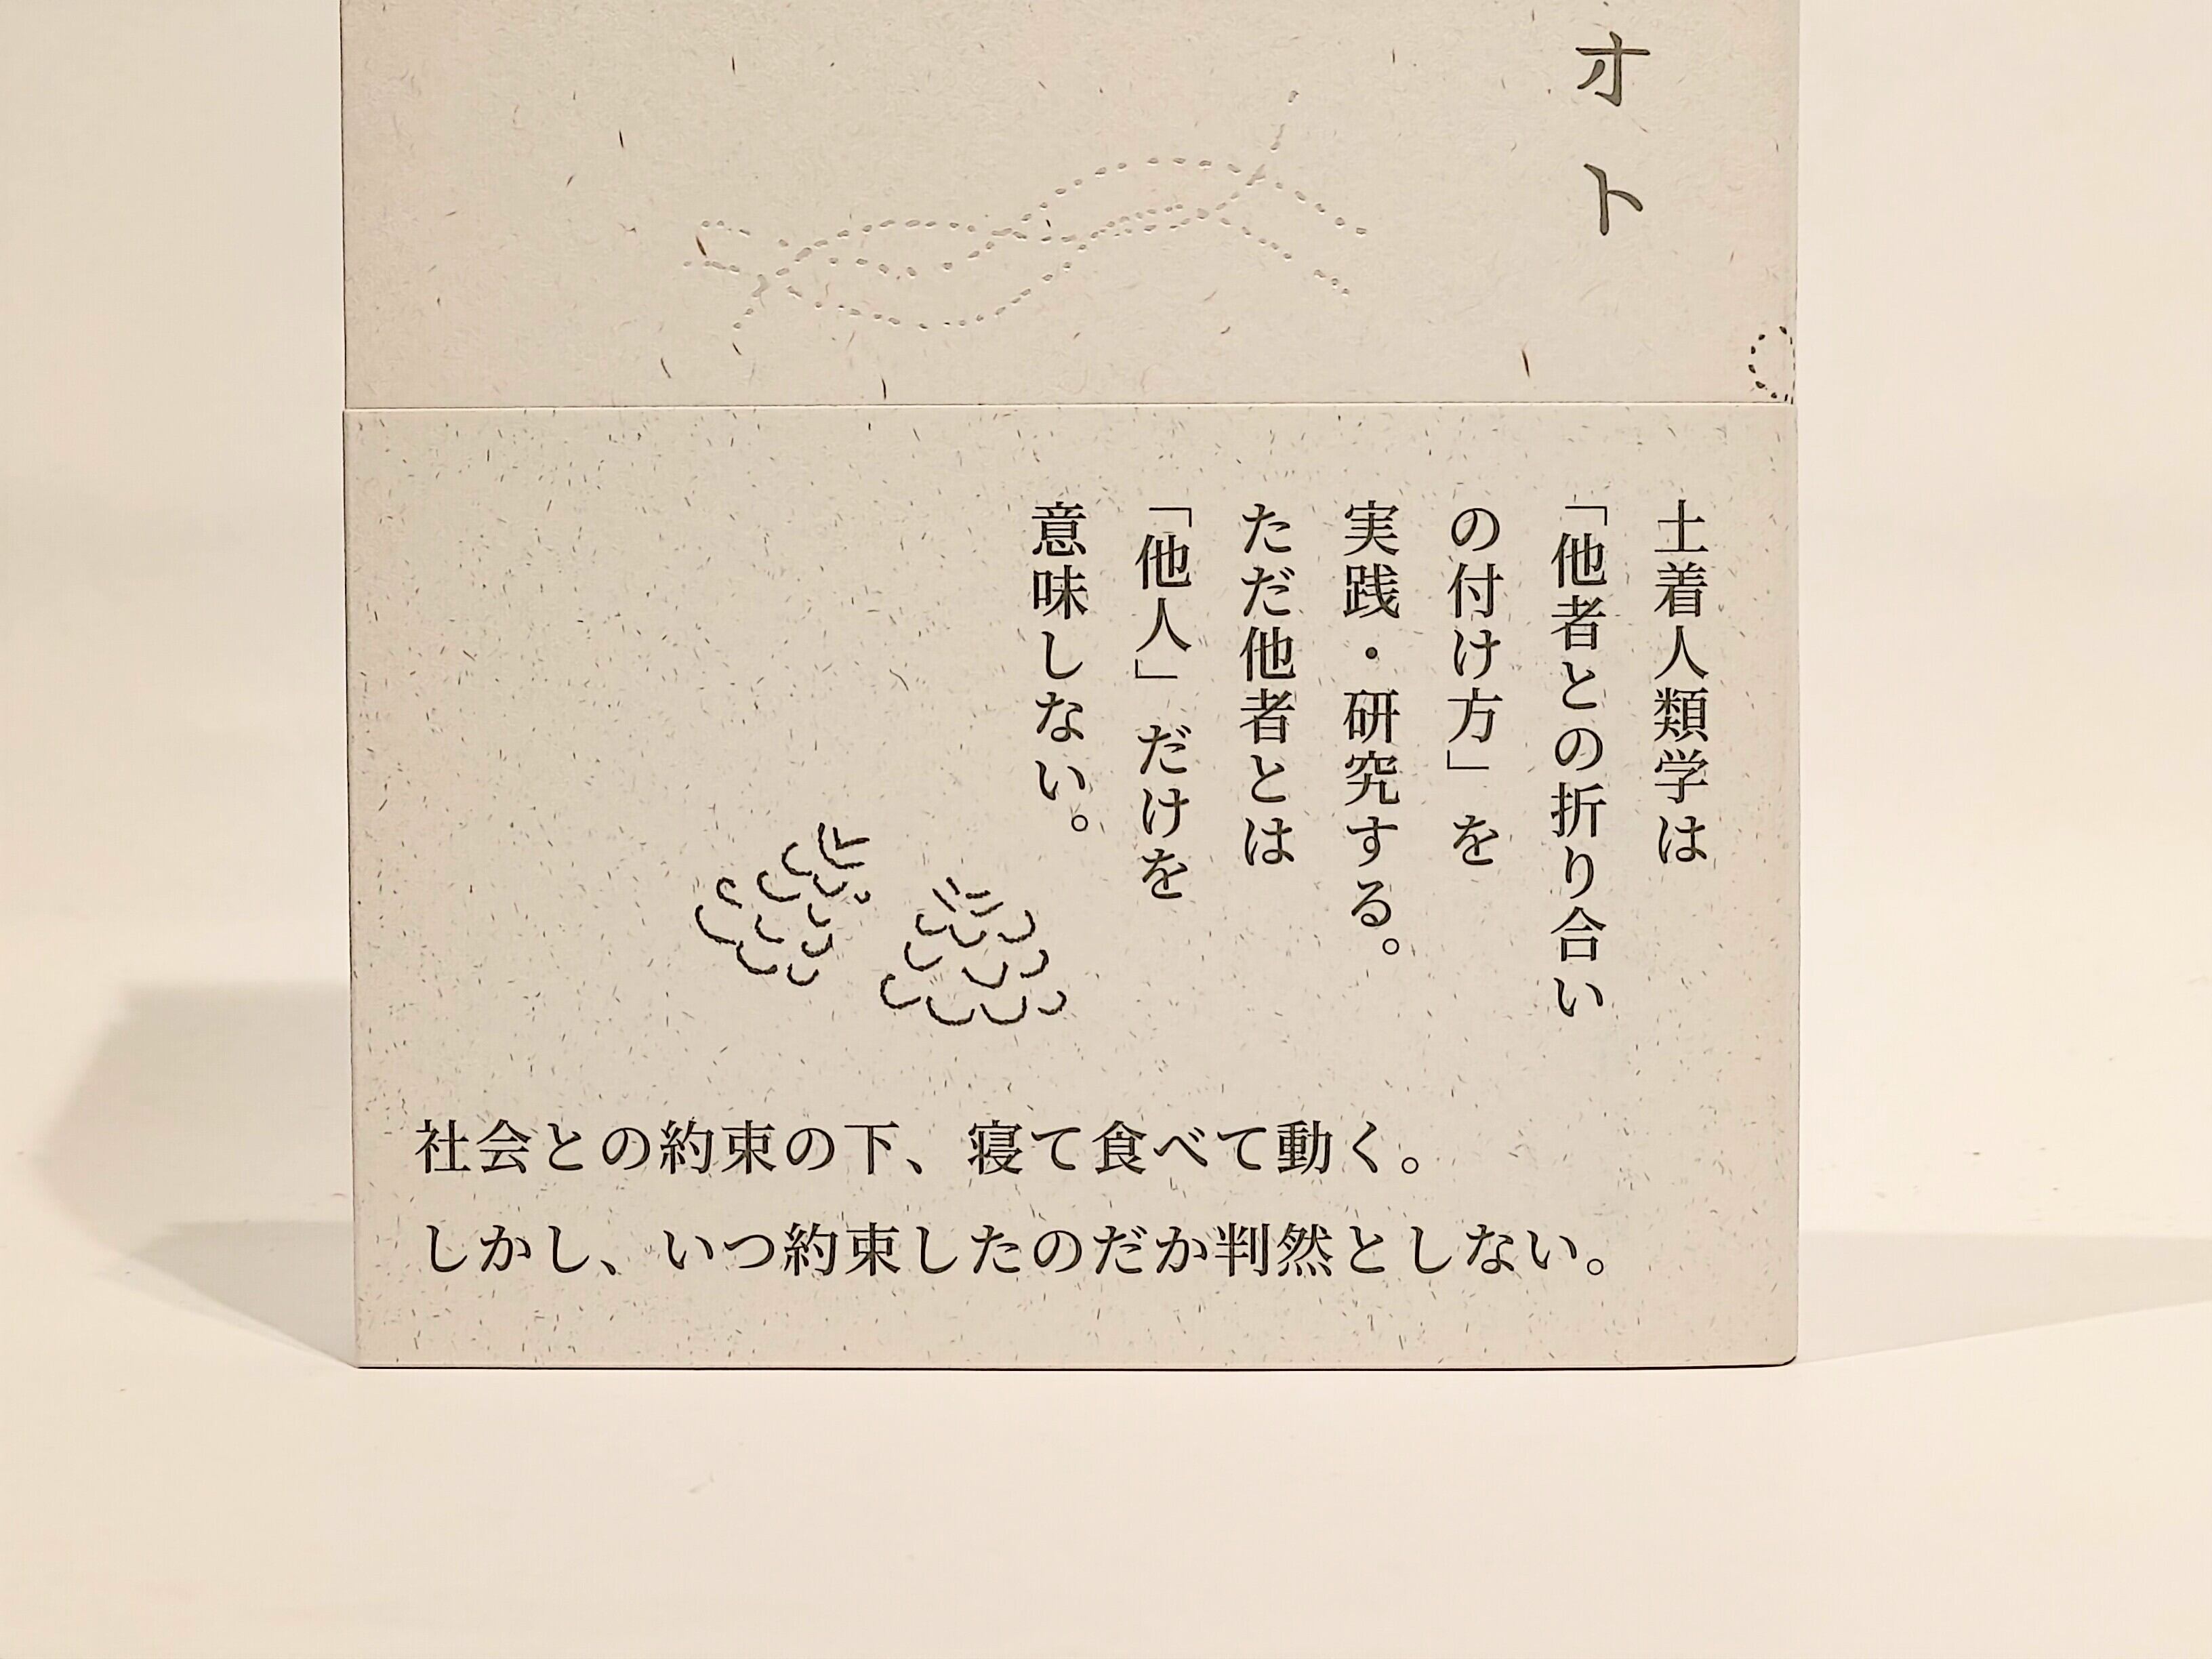 オト
土着人類学は
「他者との折り合い
の付け方」を
実践・研究する。
ただ他者とは
「他人」だけを
意味しない。
社会との約束の下、寝て食べて動く。
しかし、いつ約束したのだか判然としない。